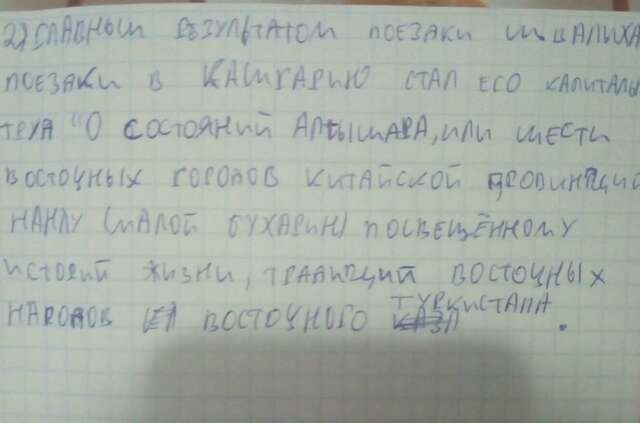 2) ГЛАВНЫМ РЕЗУЛЬТАТОМ ПОЕЗАКИ Ш ВАЛИХА
ПОЕЗАКИ В КАШГАРИЮ СТАЛ ЕГО КАПИТАЛЬ
ТРУА "О СОСТОЯНИЙ АЛТЫШАРА, ИЛИ ШЕСТИ
ВОСТОЧНЫХ ГОРОДОВ КИТАЙСКОЙ ПРОВИНЦИИ
НАНЛУ (МАЛОЙ БУХАРИИ) ПОСВЕЩЁННОМУ
ИСТОРИЙ ЖИЗНИ, ТРАДИЦИЙ ВОСТОЧНЫХ
НАРОДОВ ВОСТОЧНОГО ТУРКИСТАНА.